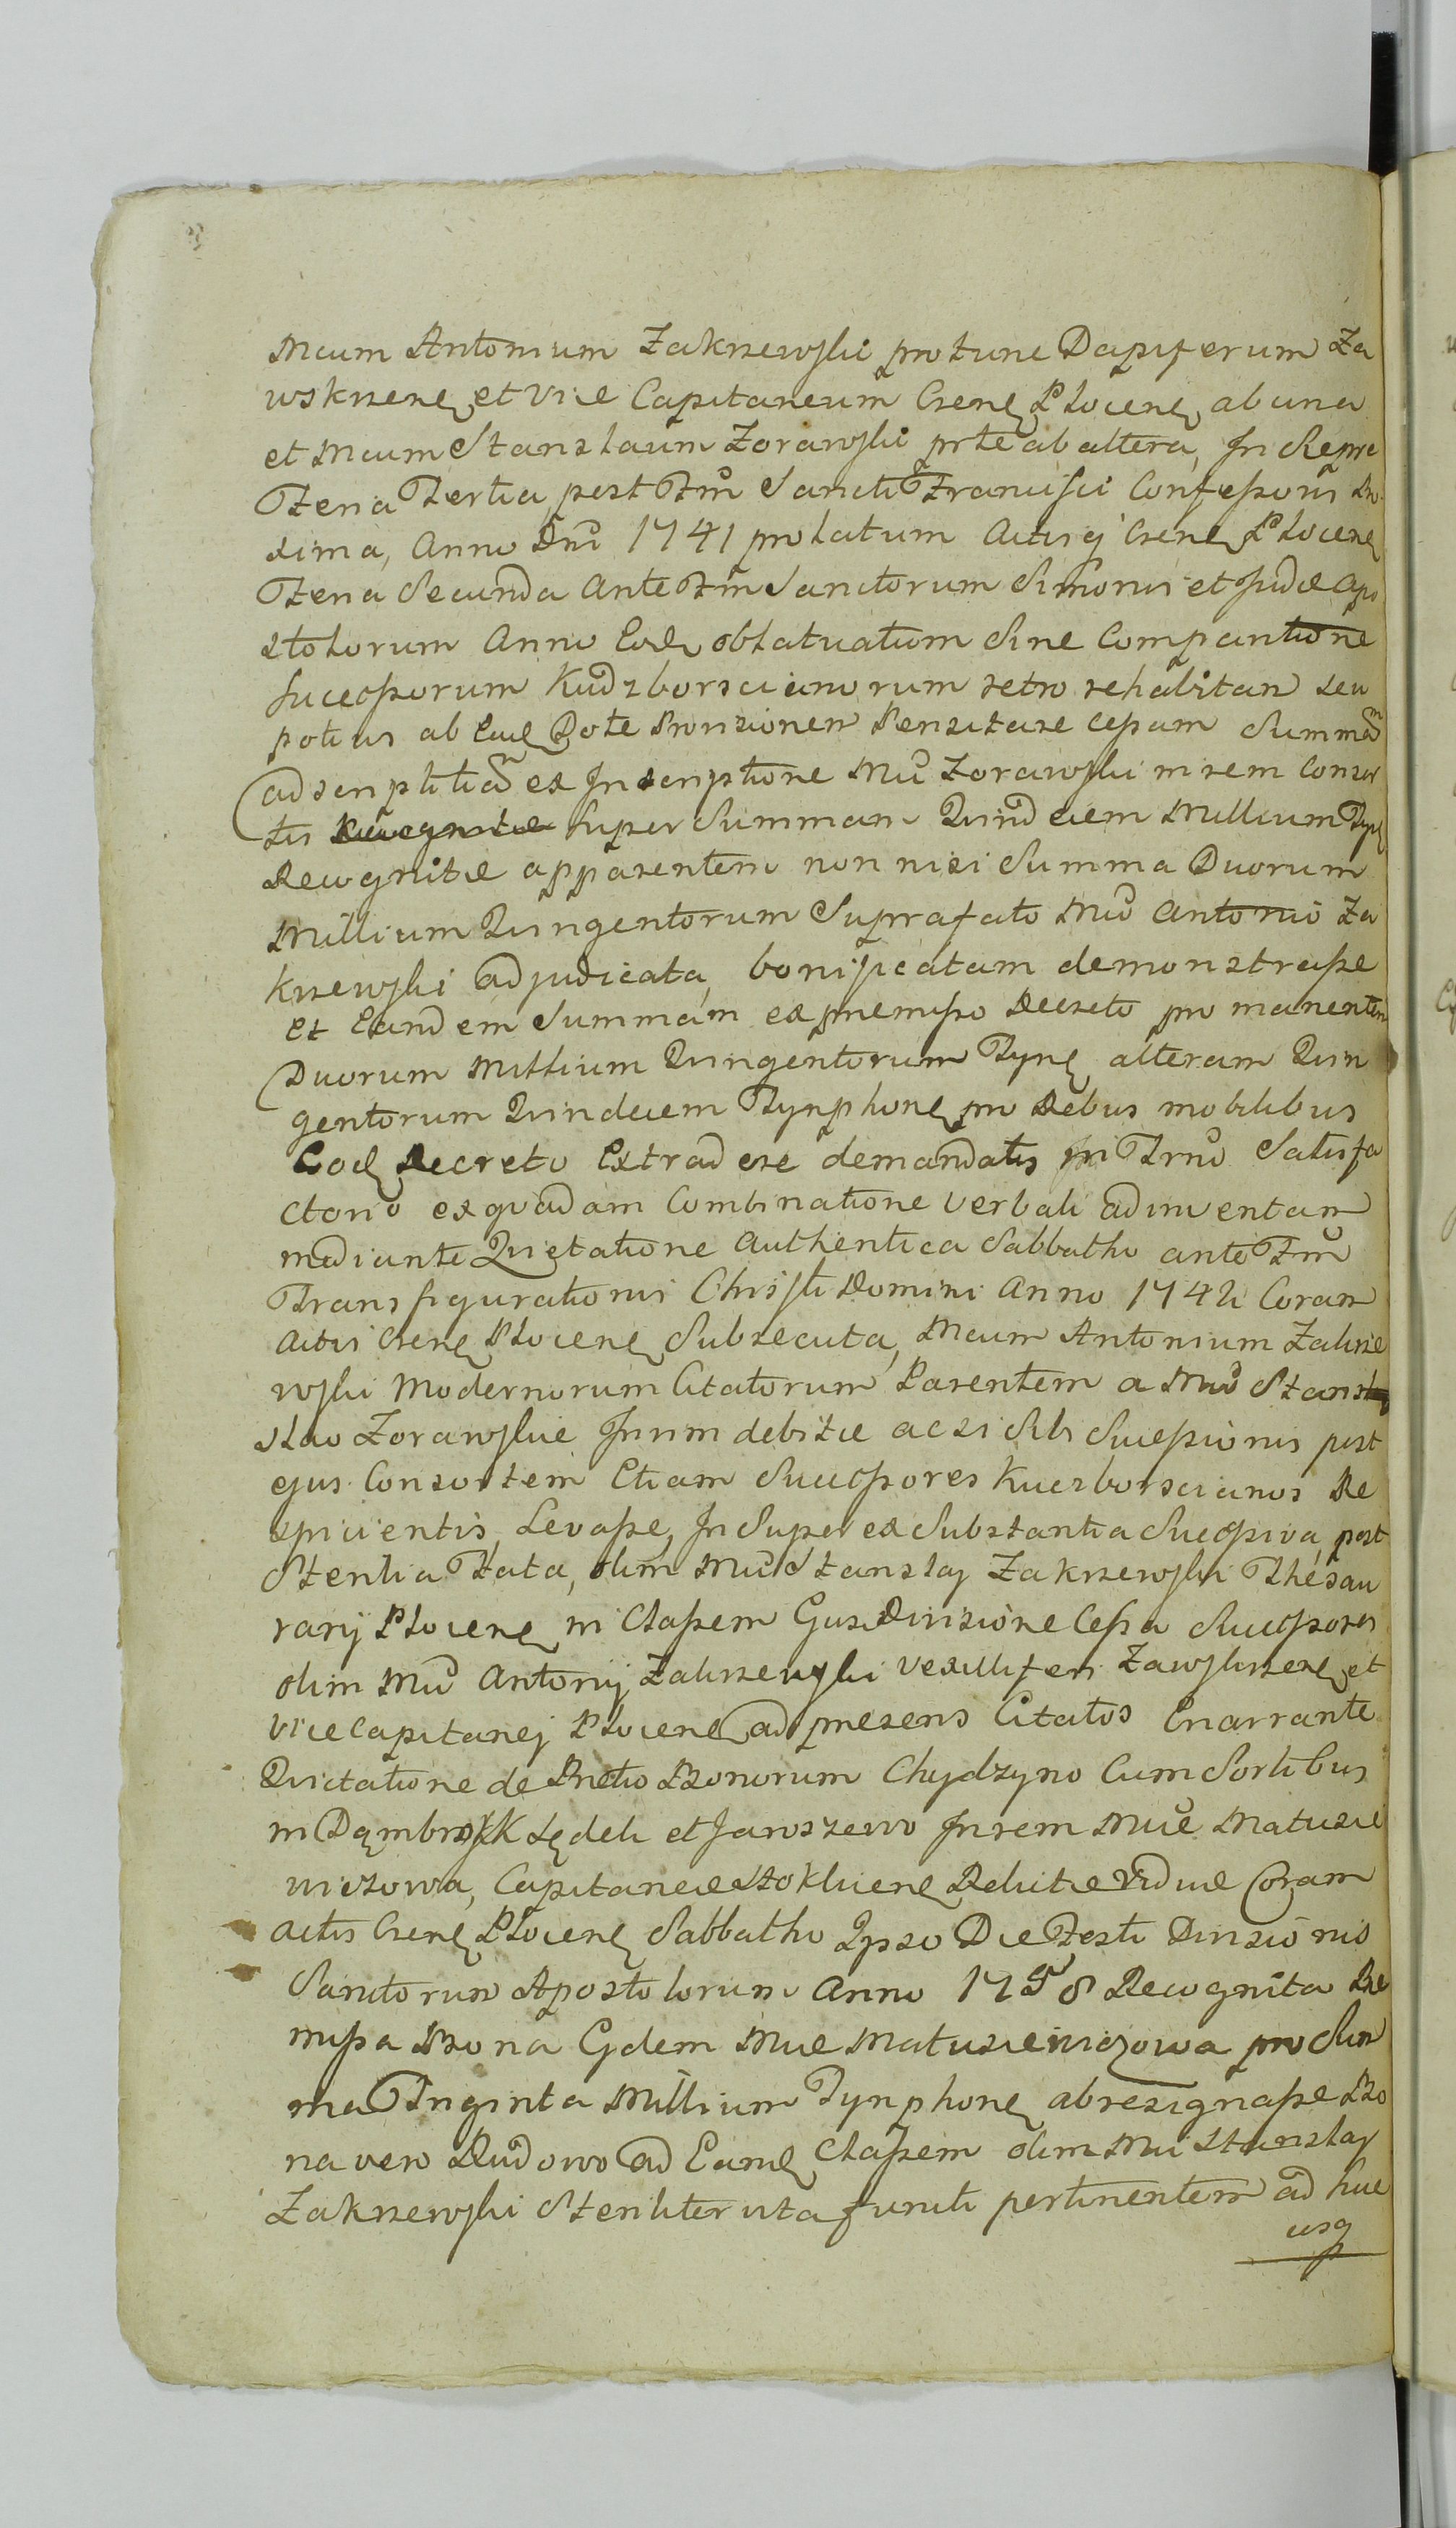 Mcum Antonium Zakrzewski pro tunc Dapiferum Za
wskrzene et Vice Capitaneum Csene Plocene ab una
et Mcum Stanslaum Zorawski prte ab altera, In
Feria Tertia post Ftm Sancti Francisci Confessoris Pro
xima, Anno Dni 1741 prolatum Actisq Csene Plocene
Feria Secunda Ante Ftm Sanctorum Simonis et Judæ Apo
stolorum Anno Eode oblatuatum Sine Comparitione
Sucessorum Kudzborscianorum retro rehabitam seu
potius ab Eade Dote Provisionem Pensitare Cessam Summam
adscriptitiam ex Inscriptione Mci Zorawski in rem Consor
tis super Summam Quindecim Millium Tyn
Recognitæ apparentem non nisi Summa Duorum
Millium Quingentorum Suprafato Mco Antonio Za
krzewski adjudicata, bonificatam demonstrasse
Et Eandem Summam ex præmisso Decreto pro manentem
Duorum Millium Quingentorum Tyne alteram Quin
gentorum Quindecim Tynphone pro Rebus mobilibus
Eode Decreto Extradere demandatis in Trno Satisfa
ctorio ex quadam Combinatione Verbali adinventam
mediante Quietatione Authentica Sabbatho ante Ftm
Transfigurationis Christi Domini Anno 1742 Coram
Actis Csene Plocene Subsecuta, Mcum Antonium Zakrze
wski Modernorum Citatorum Parentem a Mco Stans
slao Zorawskie Inim debitæ ac si Sibi Sucessionis post
ejus Consortem Etiam Sucessores Kuczborscianos Re
spicientis, Levasse, In Super ex Substantia Sucessiva post
Sterilia Fata, olim Mci Stanslaj Zakrzewski Thesau
rarij Plocene in Classem Ejus Divisione Cessa Sucessores
olim Mci Antonij Zakrzewski Vexilliferi Zawskrzene et
Vice Capitanej Plocene ad præsens Citatos Enarrante
Quietatione de Pretio Bonorum Chydzyno Cum Sortibus
in Dąmbrosk Lędeli et Jaroszewo In rem Mcæ Matusie
wiczowa, Capitaneæ Stoklicene Relictæ Viduæ Coram
Actis Csene Plocene Sabbatho Ipso Die Festi Divisionis
Sanctorum Apostolorum Anno 1758 Recognita Præ
missa Bona Ejdem Mcæ Matusiewiczowa pro Sum
ma Triginta Millium Tynphone abresignasse Bo
na vero Rudowo ad Eande Classem olim Mci Stanslaj
Zakrzewski Steriliter uta functi pertinentem ad huc
usq